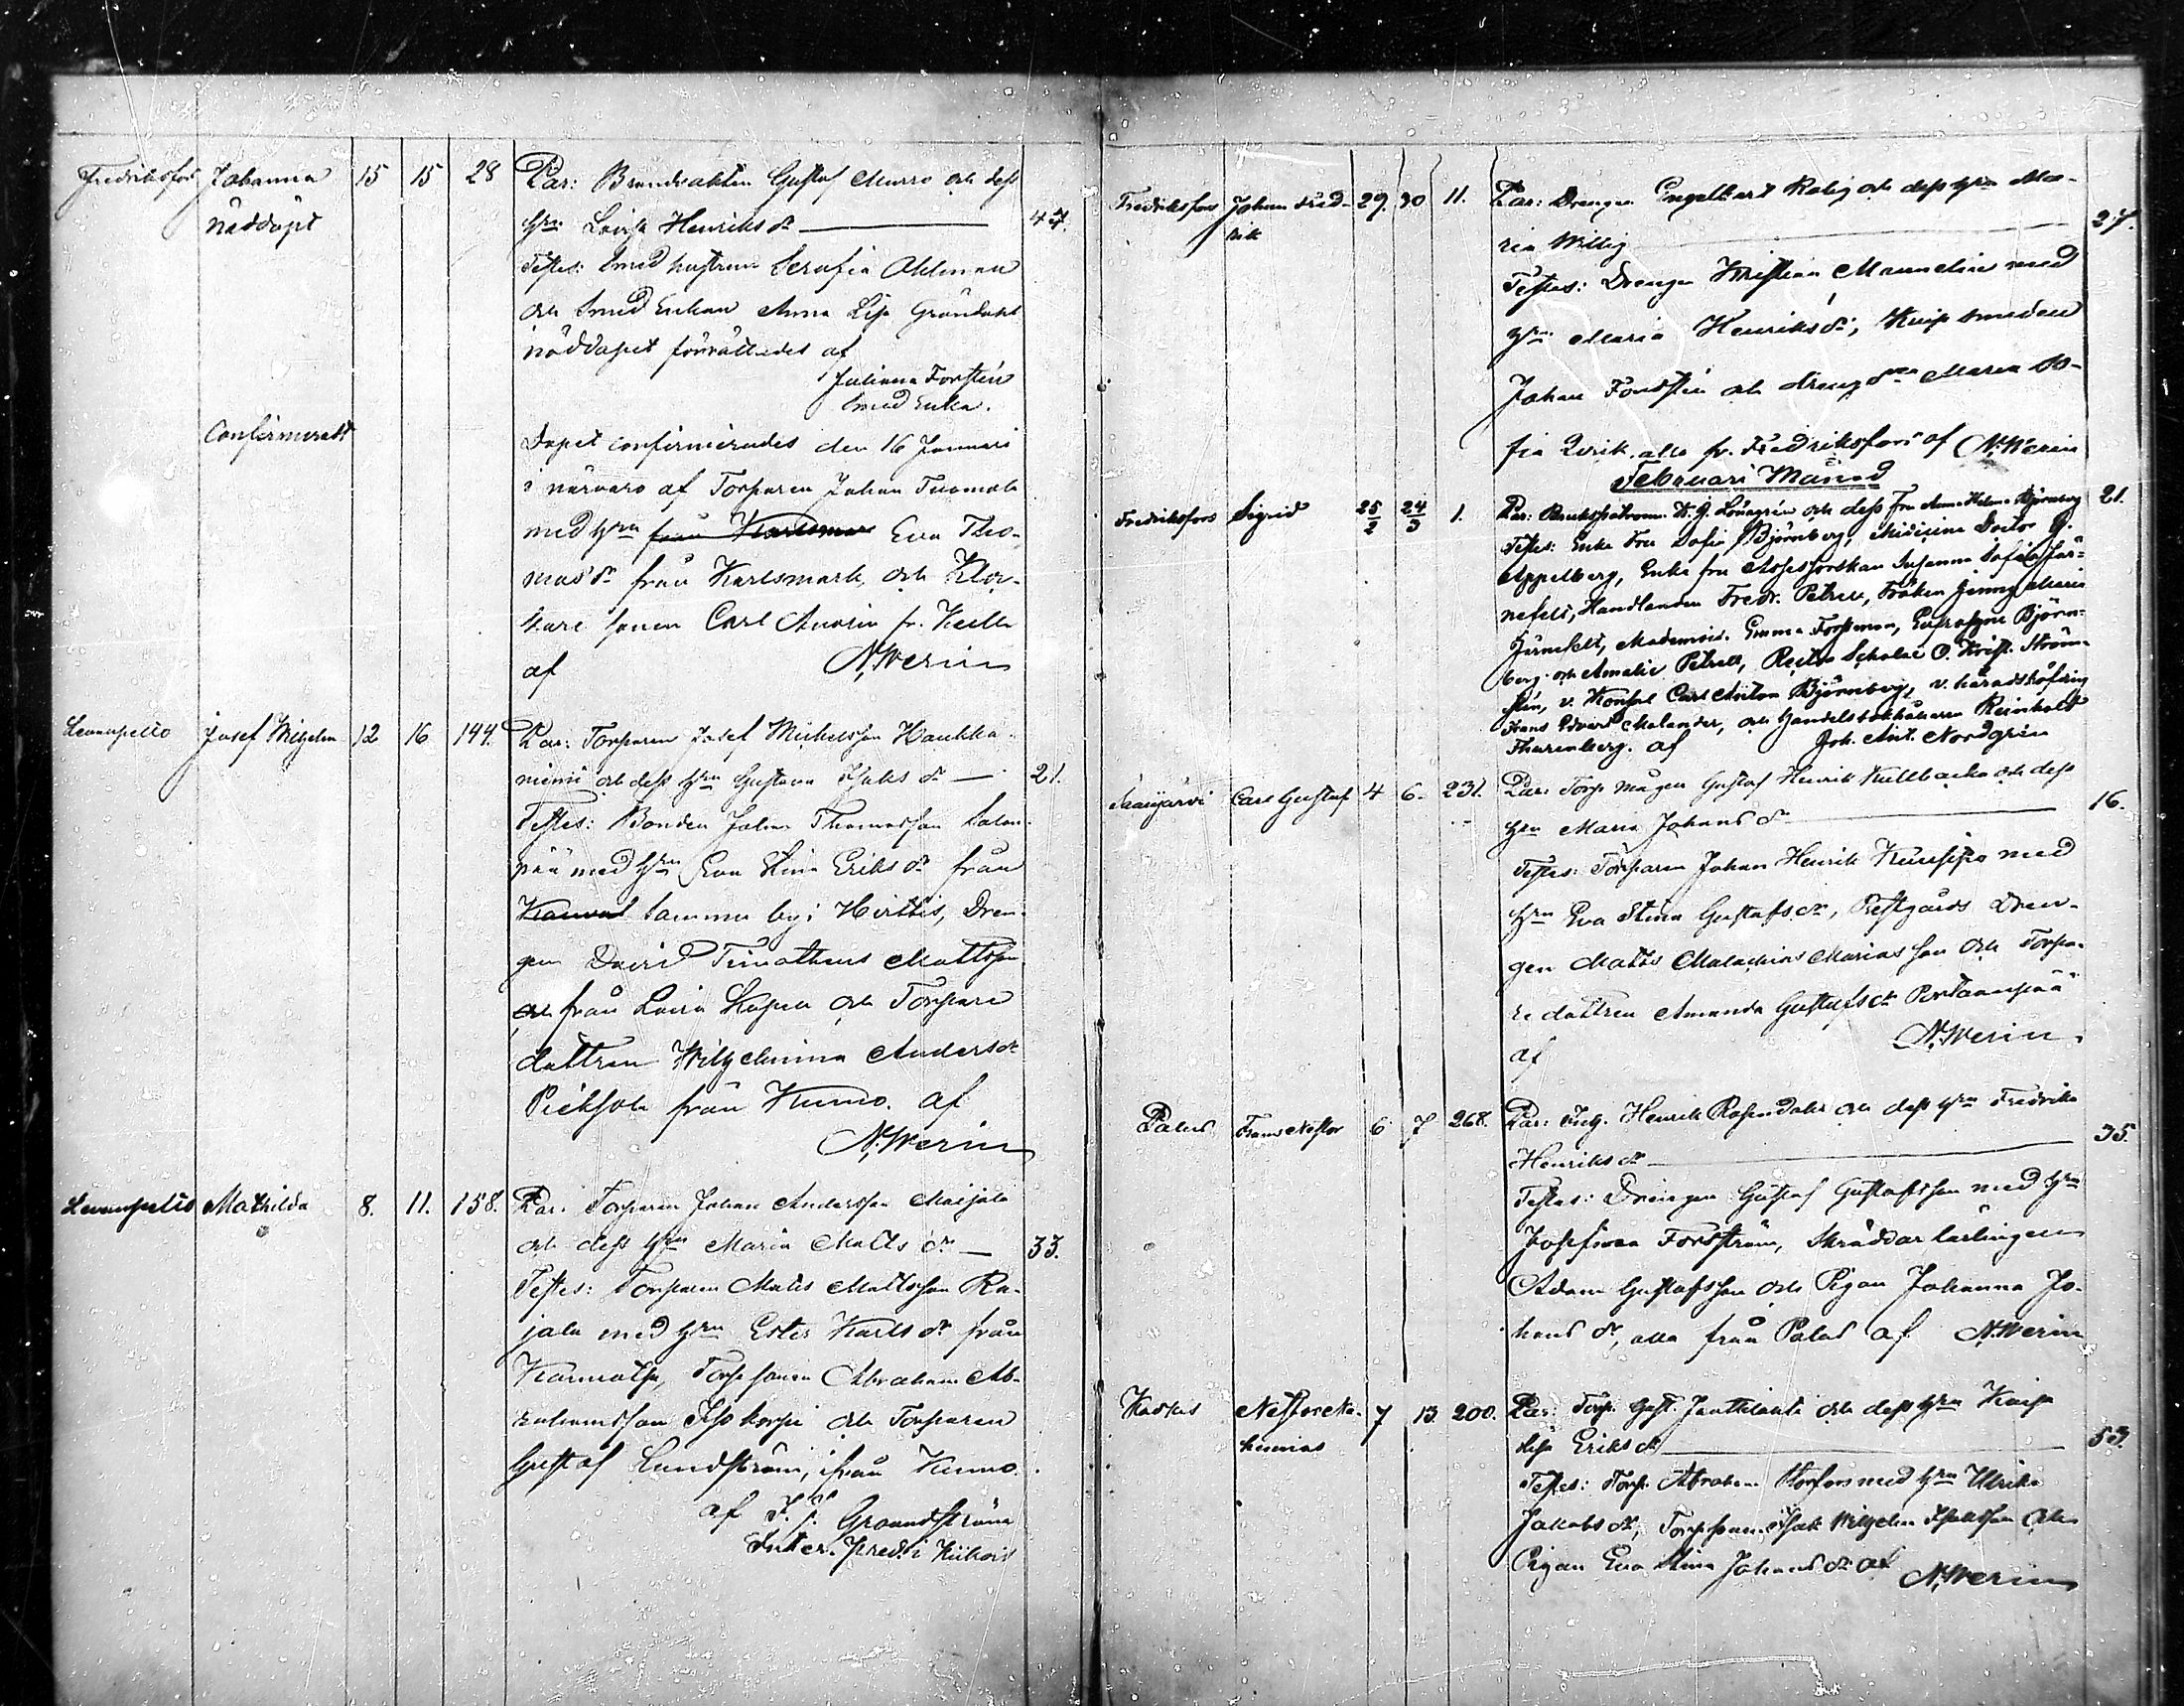 Fredriksfors Johanna 15 15 28 Par: Brandvakten Gustaf Murro och dess
nöddöpt hru Lovisa Henriks dr 47.
Testes: Smed hustrun Serafia Ahlman
och Smed Enkan Anna Lisa Gröndahl
nöddopet förrättades af
Juliana Forstén
smed Enka.
Confirmeradt Dopet confirmerades den 16 Januari
i närvaro af Torparen Johan Tuomola
med hru från Karlsmark Eva Tho-
mas dr från Karlsmark, och Kloc-
kare sonen Carl Avolin fr. Keills
af N. Werin
Levanpelto Josef Wilhelm 12 16 144. Par: Torparen Josef Michelsson Haukka-
niemi och dess hru Gustava Isaks dr 21.
Testes: Bonden Johan Thomasson Salon-
pää med hru Eva Stina Eriks dr från
samma by; Hirttis, Dren-
gen David Timotheus Mattsson
och från Lavia Kapell och Torpare
dottren Wilhelmina Anders dr
från Kumo. af
N. Werin
Levanpelto Mathilda 8. 11. 158. Par: Torparen Johan Andersson Maijala
och dess hru Maria Matts dr 33.
Testes: Torparen Matts Mattsson Ra-
jala med hru Ester Karls dr från
Torp sonen Abraham Ab-
rahamsson Isokorpi och Torparen
Gustaf Lundström, ifrån Kumo.
af J. F. Groundström
Inter. pred. i Kiikois
Fredriksfors Johan Fred- 29. 30 11. Par: Drengen Engelbart Rabig och dess hru Ma-
rik ria Willig 27.
Testes: Drengen Kristian Mannelin med
hru Maria Henriks dr, Knip smeden
Johan Forsstén och dreng dren Maria So-
fia Qvick, alla fr. Fredriksfors af N. Werin
Februari Månad
Fredriksfors Sigrid 25/2 24/3 1. Par: Bruks patron K. J. Lönegren och dess Fru Anna Helena Björnberg 21.
Testes: Enke Fru Sofia Björnberg, Medicine Doctor G.
Appelberg, Enke fru Assessorskan Susanna Sofia Jär-
nefelt, Handlanden Fredr. Petrell, Fröken Jenny Maria
Järnefelt, Mademois. Emma Forsman, Eufrosyne Björn-
berg och Amalie Petrell, Rector Scholae O. Krist. Ström-
stén, v. Konsul Carl Anton Björnberg, v. häradshöfding
Frans Edvard Malander, och Handelsbokhållaren Reinhold
Thurenberg. af Joh. Ant. Nordgren
Saarijärvi Carl Gustaf 4 6. 231. Par: Torp mågen Gustaf Henrik Kullbacka och dess
hru Maria Johans dr 16.
Testes: Torparen Johan Henrik Kuusisto med
hru Eva Stina Gustafs dr, Prestgårds Dren-
gen Matts Malachias Marias son och Torpa-
re dottren Amanda Gustafs dr
af N. Werin.
Palus Frans Nestor 6 7 268. Par: Inh. Henrik Rosendahl och dess hru Fredrika
Henriks dr 35.
Testes: Drengen Gustaf Gustafsson med hru
Josefina Forsström, Skräddar lärlingen
Adam Gustafsson och Pigan Johanna Jo-
hans dr, alla från Palus af N. Werin
Kaskis Nestor Ne- 7 13 200. Par: Torp. Gust. Janttilanti och dess hru Kaisa
hemias Lisa Eriks dr 53.
Testes: Torp. Abraham Storfors med hru Ulrika
Jakobs dr, Torp sonen Isak Wilhelm Isaksson och
Pigan Eva Stina Johans dr af N. Werin